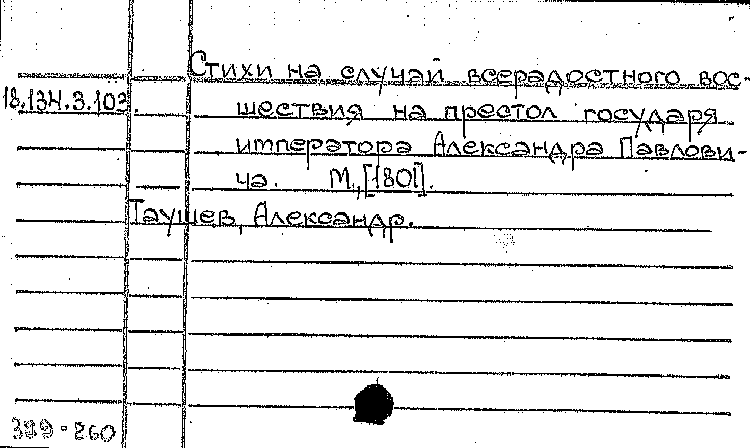 Стихи на случай всерадостного вос-
18.134.3.103.
шествия на престол государя
императора Александра Павлови-
ча. М., [1801].
Таушев, Александр.
399-260